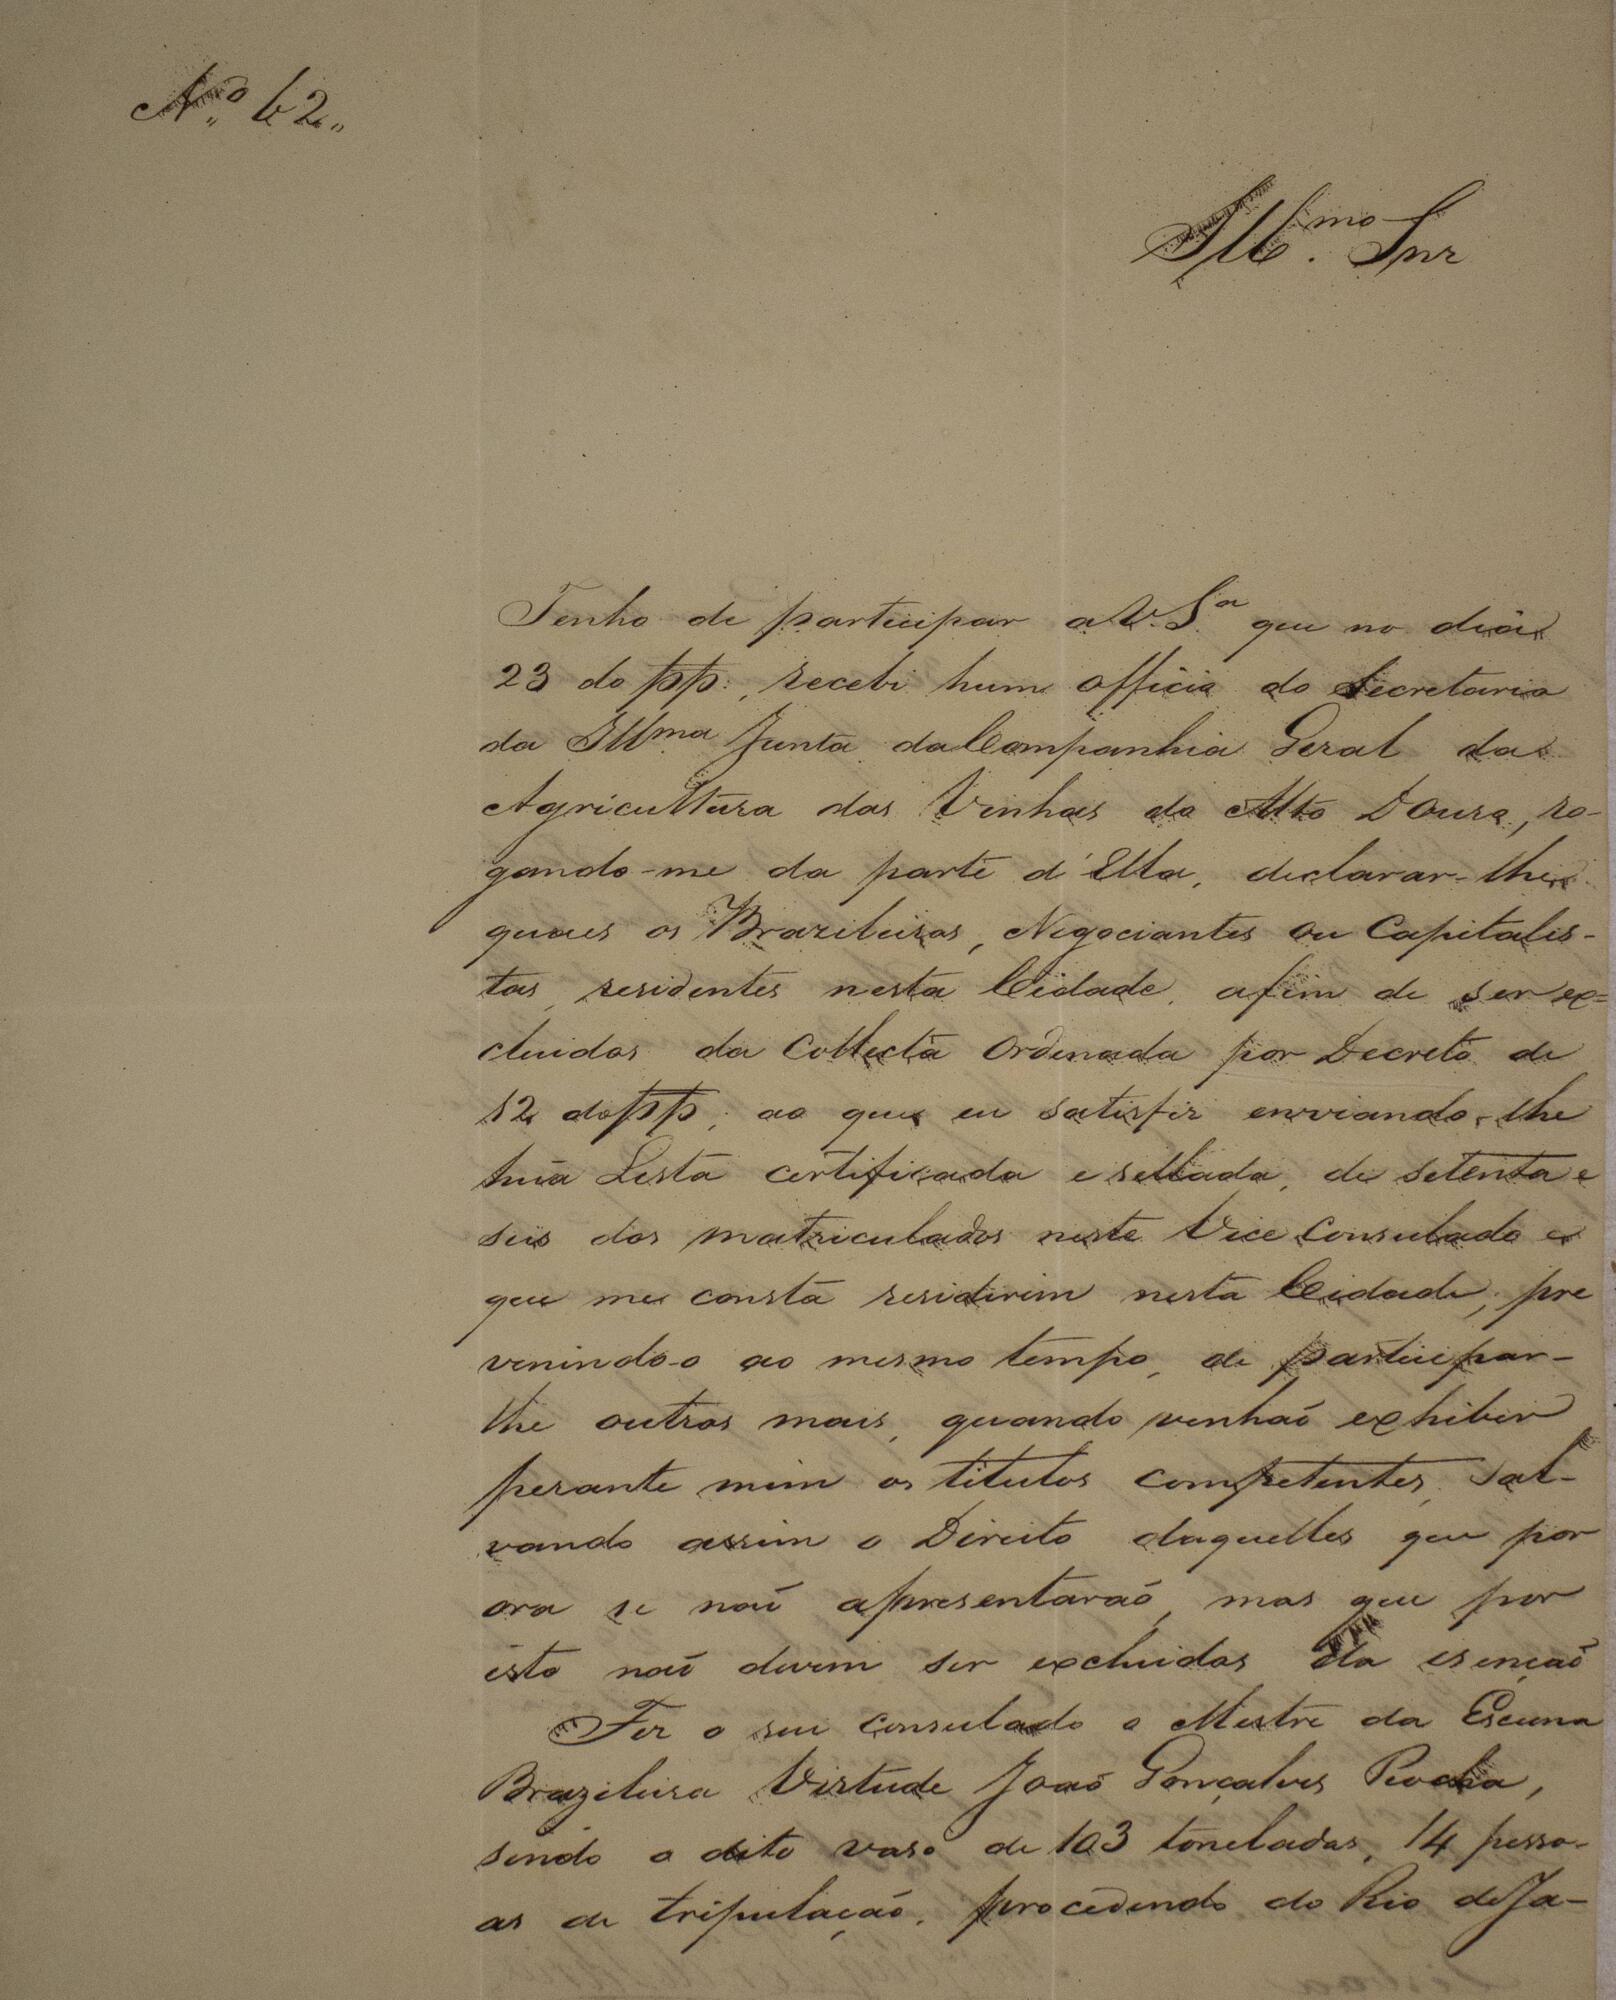 N.º 62.
Ill.mo Snr
Tenho de participar a V. S.ª que no dia
23 do pp:, recebi hum officio do Secretario
da Ill.ma Junta da Companhia Geral da
Agricultura das Vinhas do Alto Douro, ro-
gando-me da parte d'Ella, declarar-lhe
quaes os Brazileiros, Negociantes ou Capitalis-
tas, residentes nesta Cidade, afim de ser ex=
cluidos da Collecta Ordenada por Decreto de
12 do pp; ao que eu satisfiz enviando-lhe
huã Lista certificada e sellada, de setenta e
seis dos matriculados neste Vice Consulado e
que me consta residirim nesta Cidade; pre
venindo-o ao mesmo tempo, de participar-
lhe outros mais, quando venhaõ exhibir
perante mim os titulos competentes, sal-
vando assim o Direito daquelles que por
ora se naõ apresentaraõ, mas que por
isto naõ devem ser excluidos da esençaõ
Fez o seu consulado o Mestre da Escuna
Brazileira Virtude Joaõ Gonçalves Rocha,
sendo o dito vaso de 103 toneladas, 14 pesso-
as de tripulaçaõ, procedendo do Rio de Ja-